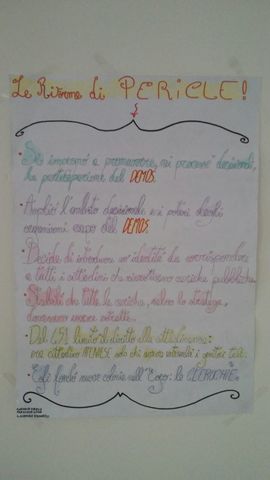 Le Riforme di PERICLE!
• Si impegnò a promuovere, nei processi decisionali,
la partecipazione del DEMOS.
• Ampliò l'ambito decisionale e i poteri degli
organismi espr. del DEMOS.
• Decide di introdurre un'indennità da corrispondere
a tutti i cittadini che rivestivano cariche pubbliche.
• Stabilì che tutte le cariche, salvo lo stratega,
dovevano essere
• Dal 451 limitò il diritto alla cittadinanza:
era cittadino ATENIESE solo chi aveva entrambi i genitori tali.
• Egli fondò nuove colonie nell'Egeo: le CLERUCHIE.